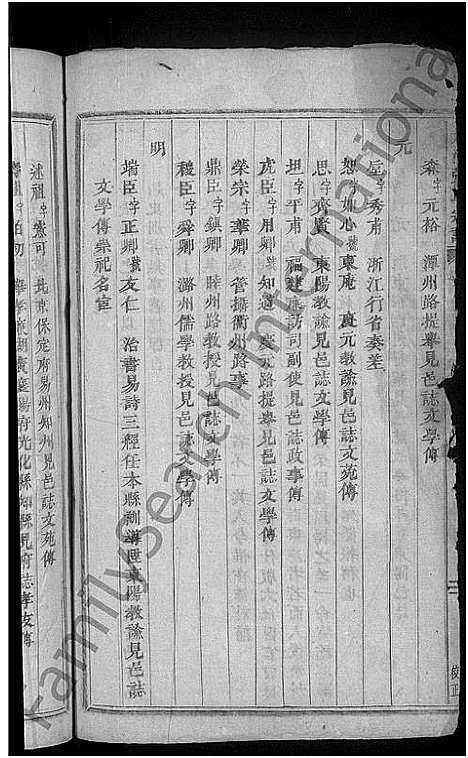 元
森字元裕 潭州路提舉見邑誌文學傳
垕字秀甫 浙江行省奏差
恕字如心號東庵 慶元教諭見邑誌文苑傳
思字齊賢 東陽教諭見邑誌文學傳
坦字平甫 福建廉訪司副使見邑誌政事傳
虎臣字用卿 知道 慶元路提舉見邑誌文學傳
榮宗字華卿 管攝衢州路事
鼎臣字鎮卿 睦州路教授見邑誌文學傳
稷臣字舜卿 潞州儒學教授見邑誌文學傳
明
瑞臣字正卿號友仁 治書易詩三經任本縣訓導陞東陽教諭見邑誌
文學傳崇祀名宦
述祖字憲可 北京保定府易州知州見邑誌文苑傳
祖字伯 舉孝廉湖廣襄陽府光化縣知縣見府誌孝友傳
校正
familysearch international